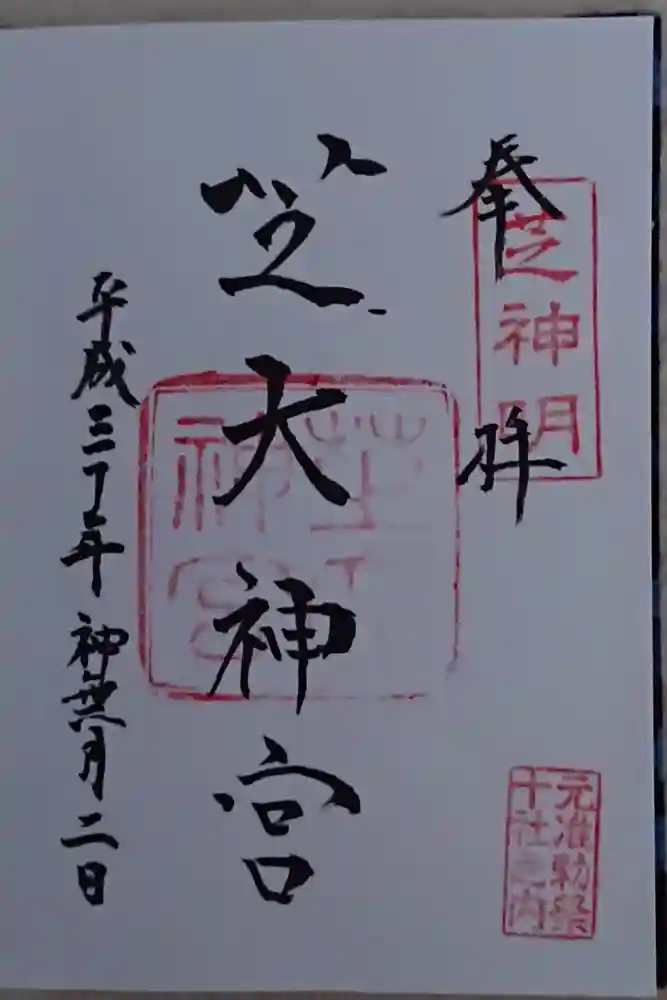 奉拝
芝神明
元准勅祭
十社之内
芝大神宮
芝大
神宮
平成三十年神無月二日